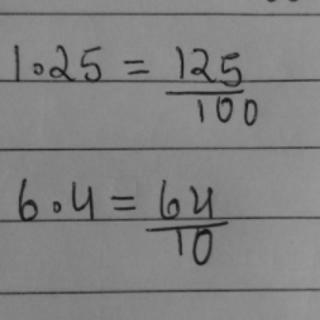 1.25 = 125/100
6.4 = 64/10